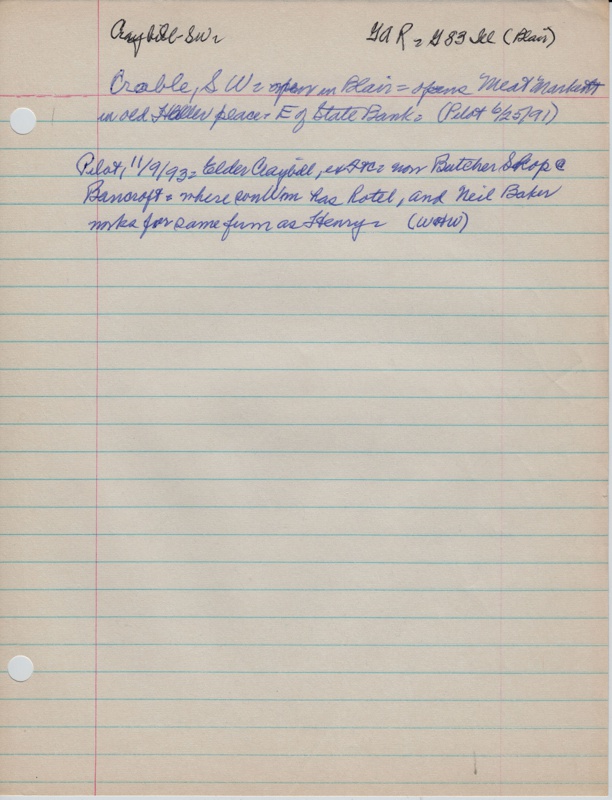 Craybill-SW= GAR = G 83 Ill (Blair)
Crable, S W = open in Blair = opens Meat Market
in old Haller place = E of State Bank = (Pilot 6/25/91)
Pilot, 11/9/93 = Elder Craybill, = now Butcher Shop @
Bancroft = where son Wm has hotel, and Neil Baker
works for same firm as Henry = (WHW)